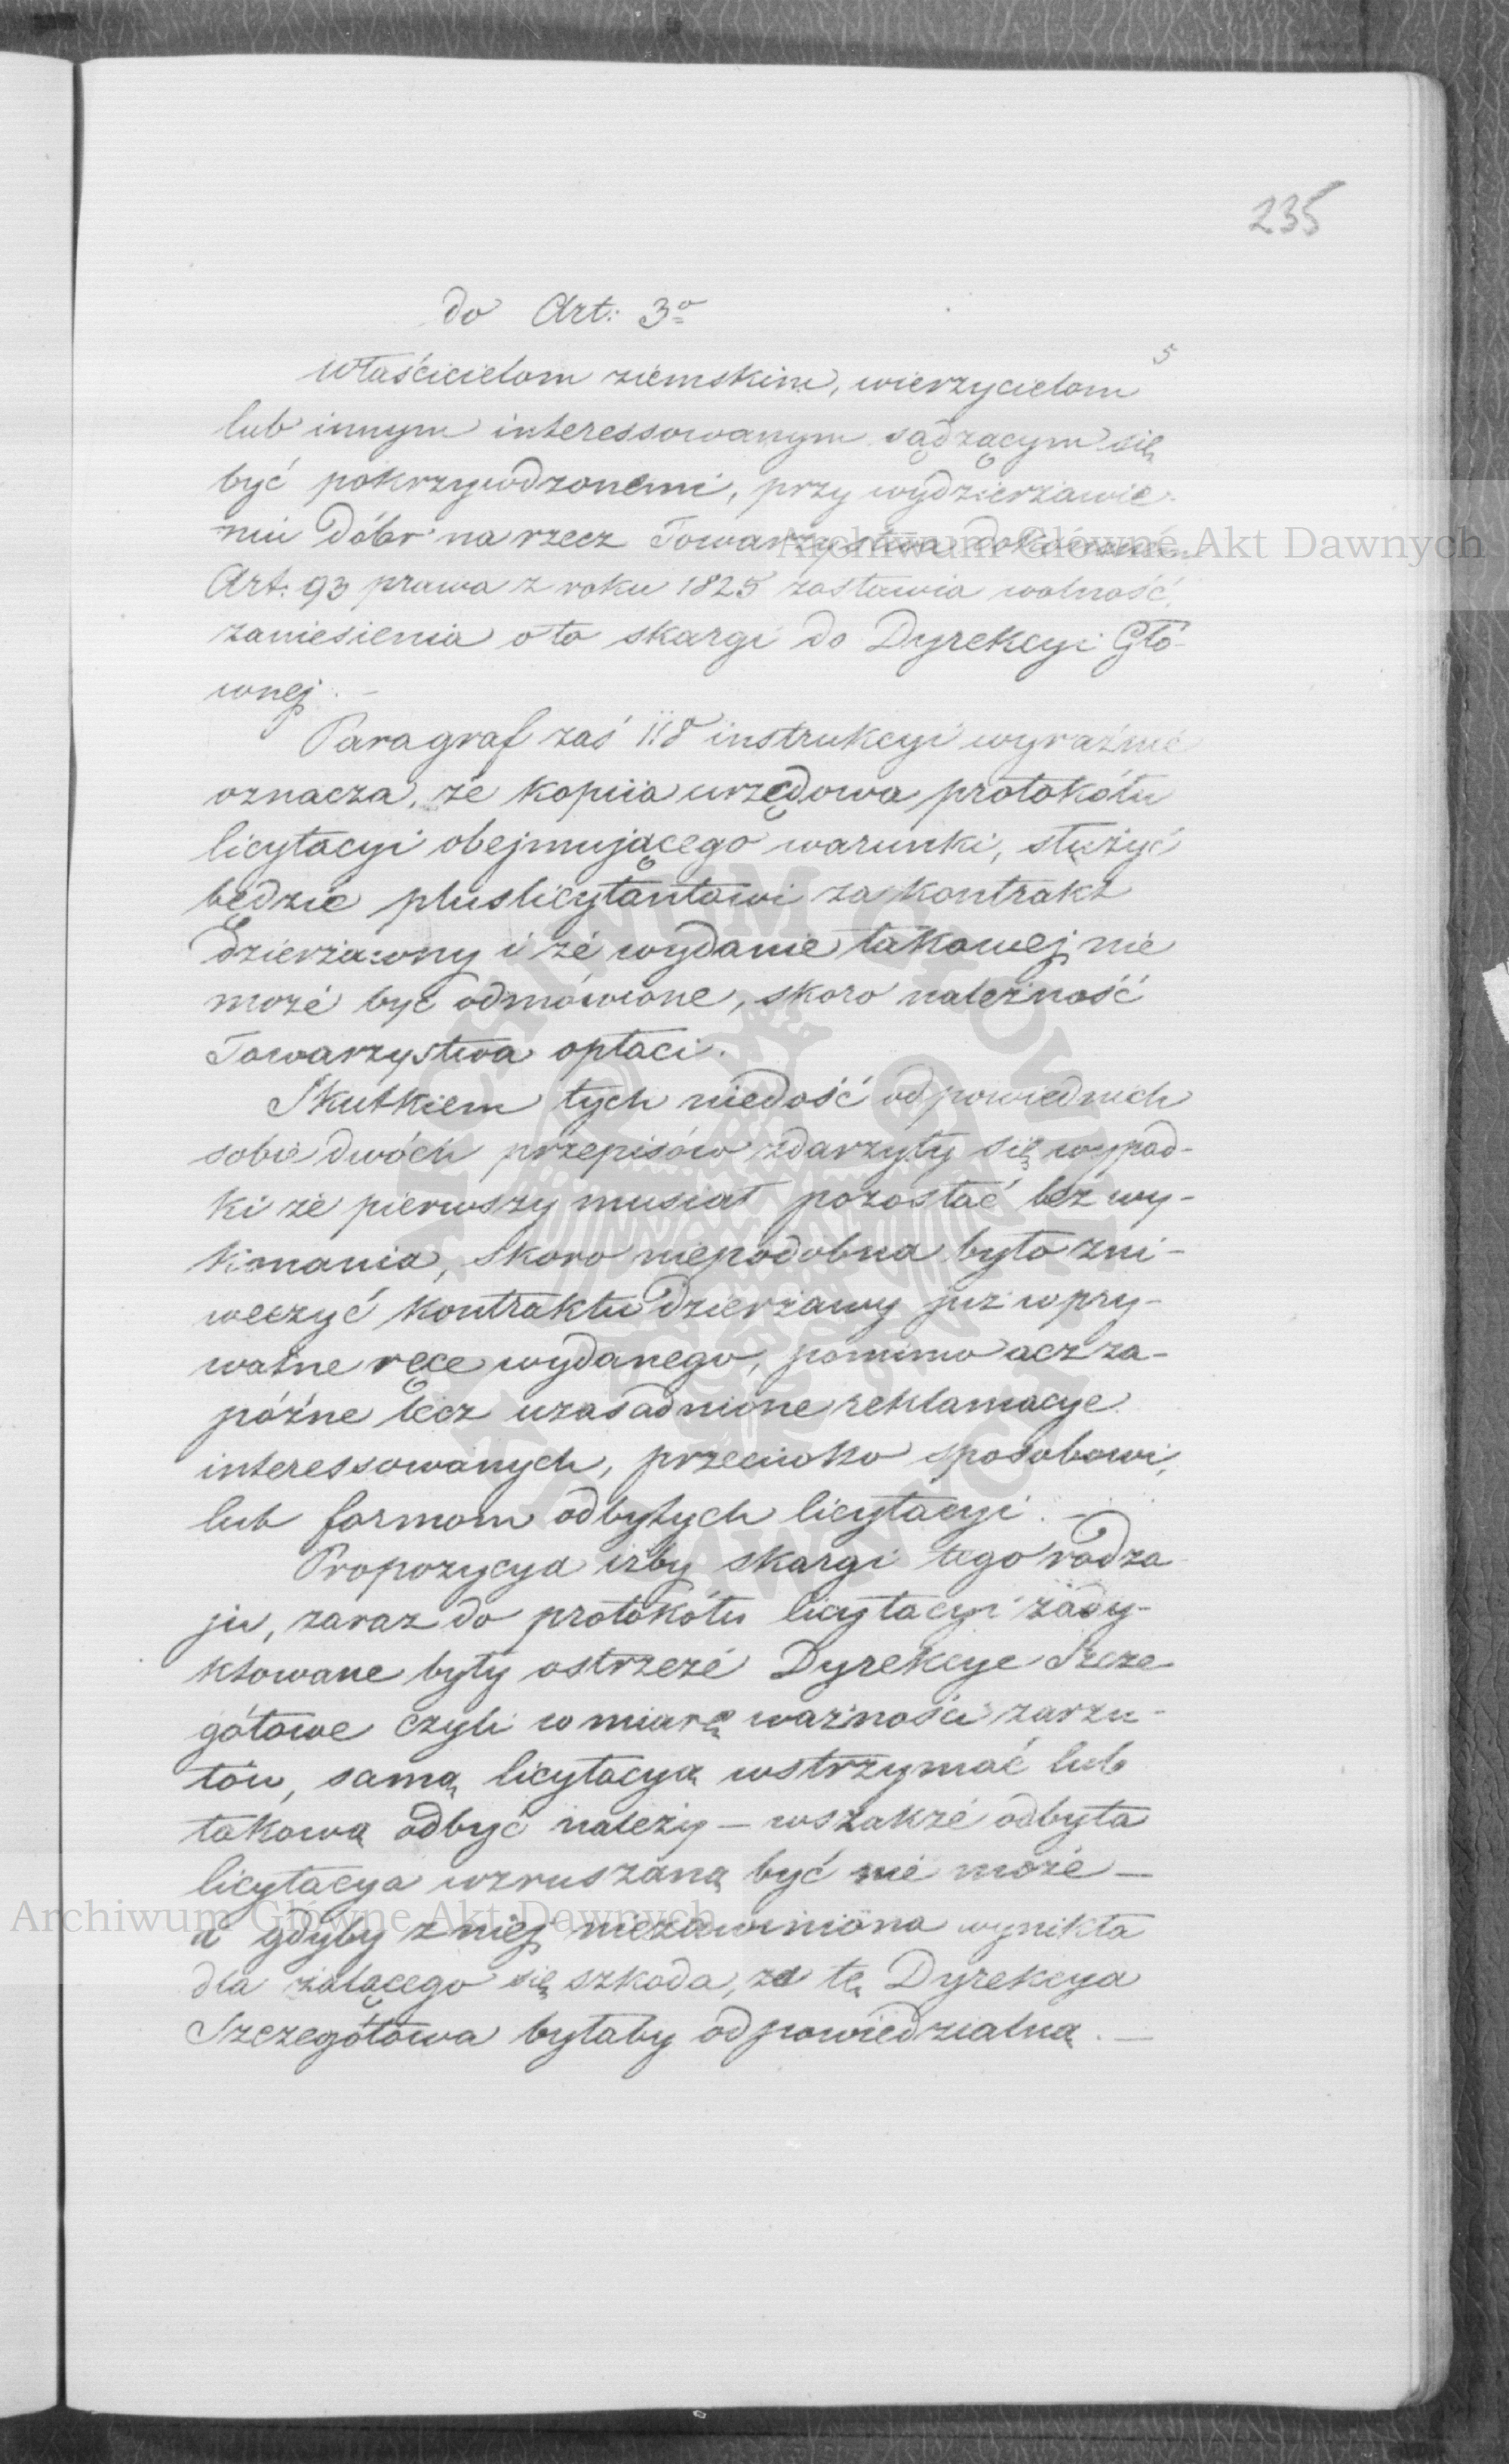 235
do Art: 3º
5
Właścicielom ziemskim, wierzycielom
lub innym interessowanym sądzącym się
być pokrzywdzonemi, przy wydzierżawie
niu Dóbr na rzecz Towarzystwa
Art: 93 prawa z roku 1825 zostawia wolność
zaniesienia o to skargi do Dyrekcyi Głó-
wnej. –
Paragraf zaś 118 instrukcyi wyraźnie
oznacza, że kopiia urzędowa protokółu
licytacyi obejmującego warunki, służyć
będzie pluslicytantowi za kontrakt
dzierżawny i że wydanie takowej nie
może być odmówione, skoro należność
Towarzystwa opłaci.
Skutkiem tych niedość odpowiednich
sobie dwóch przepisów zdarzyły się wypad-
ki że pierwszy musiał pozostać bez wy-
konania, skoro niepodobna było zni-
weczyć kontraktu Dzierżawy już w pry-
watne ręce wydanego, pomimo acz za-
późne lecz uzasadnione reklamacye
interessowanych, przeciwko sposobowi,
lub formom odbytych licytacyi. –
Propozycya iżby skargi tego rodza
ju, zaraz do protokółu licytacyi zady-
ktowane były ostrzeże Dyrekcye Szcze
gółowe czyli w miarę ważności zarzu-
tów, samą licytacyą wstrzymać lub
takową odbyć należy – wszakże odbyta
licytacya wzruszaną być nie może –
a gdyby z niej niezawiniona wynikła
dla żalącego się szkoda, za tę Dyrekcya
Szczegółowa byłaby odpowiedzialną. –
Archiwum Główne Akt Dawnych
Archiwum Główne Akt Dawnych
ARCHIWUM GŁÓWNE AKT DAWNYCH